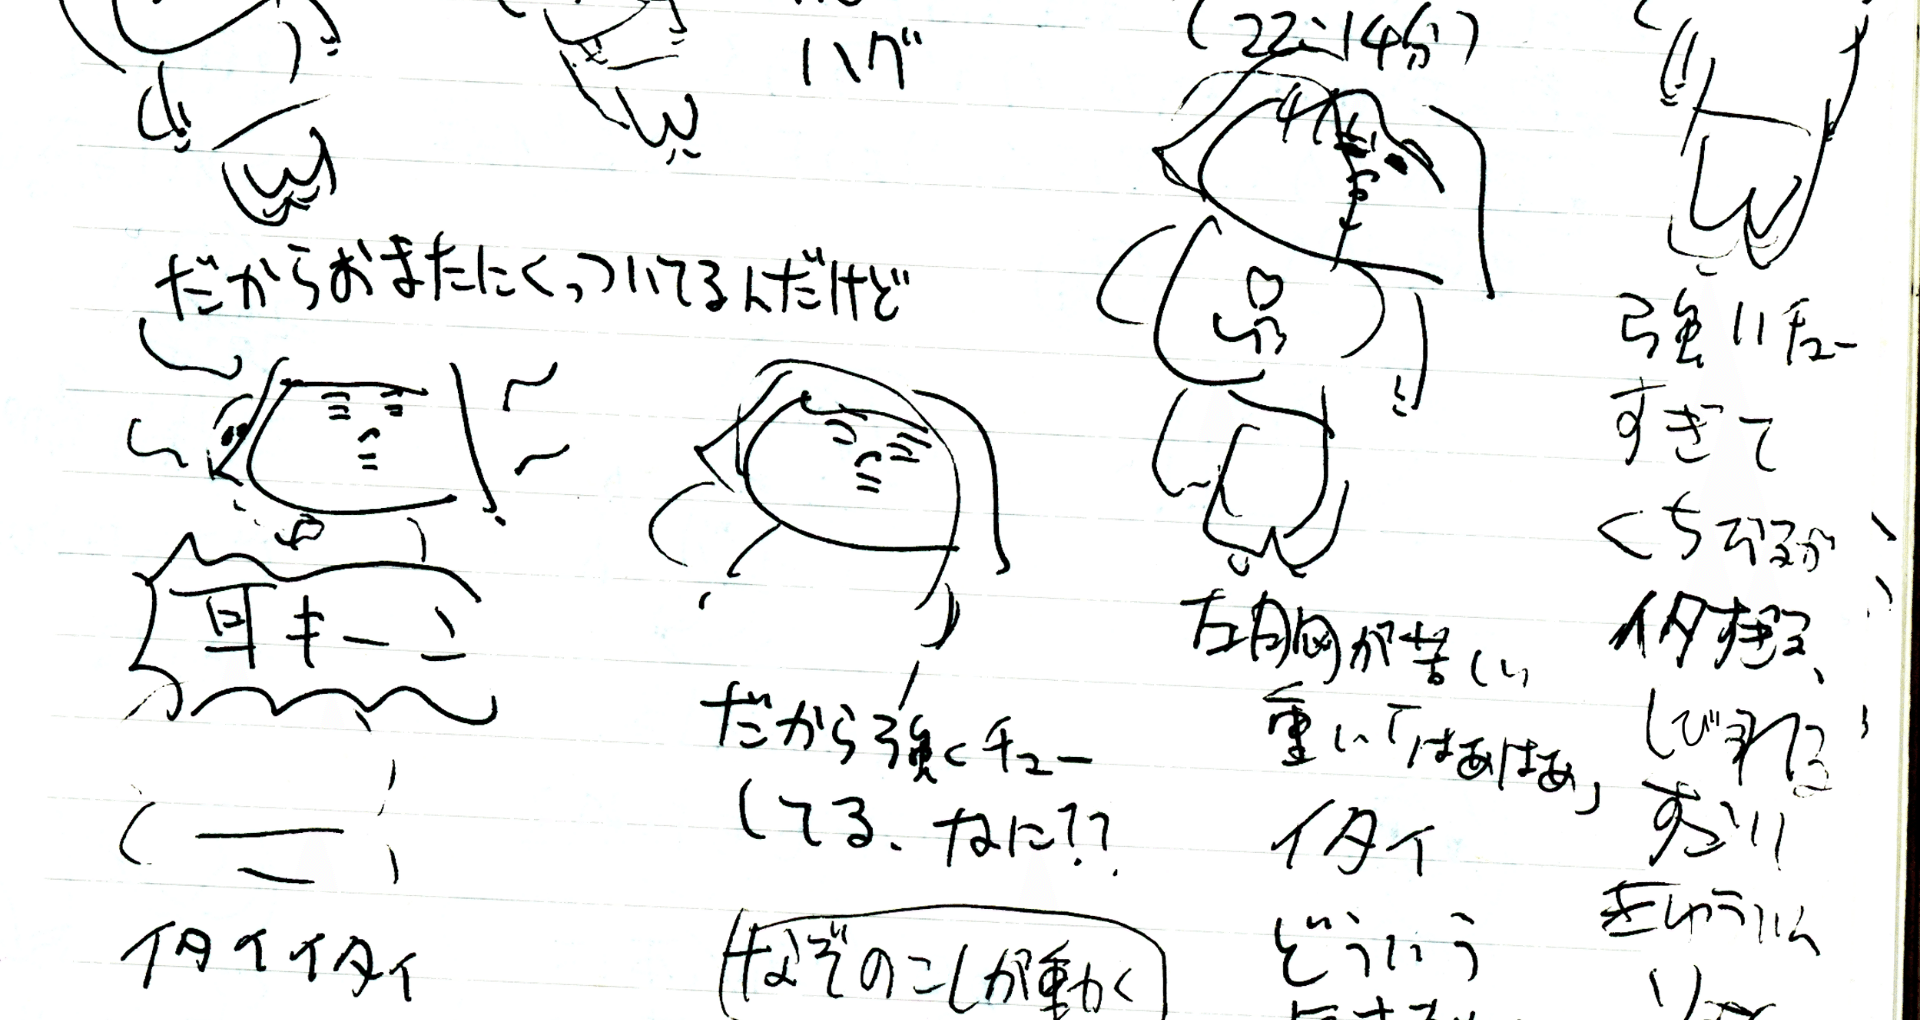 ハグ
(22:14分)
だからおまたにくっついてるんだけど
耳キーン
イタイイタイ
だから強くチュー
してる、なに??
なぞのこしが動く
左胸が苦しい
重い「はあはあ」
イタイ
どういう
強いチュー
すぎて
くちびるが
イタすぎる、
しびれる
すごい
きゅうに